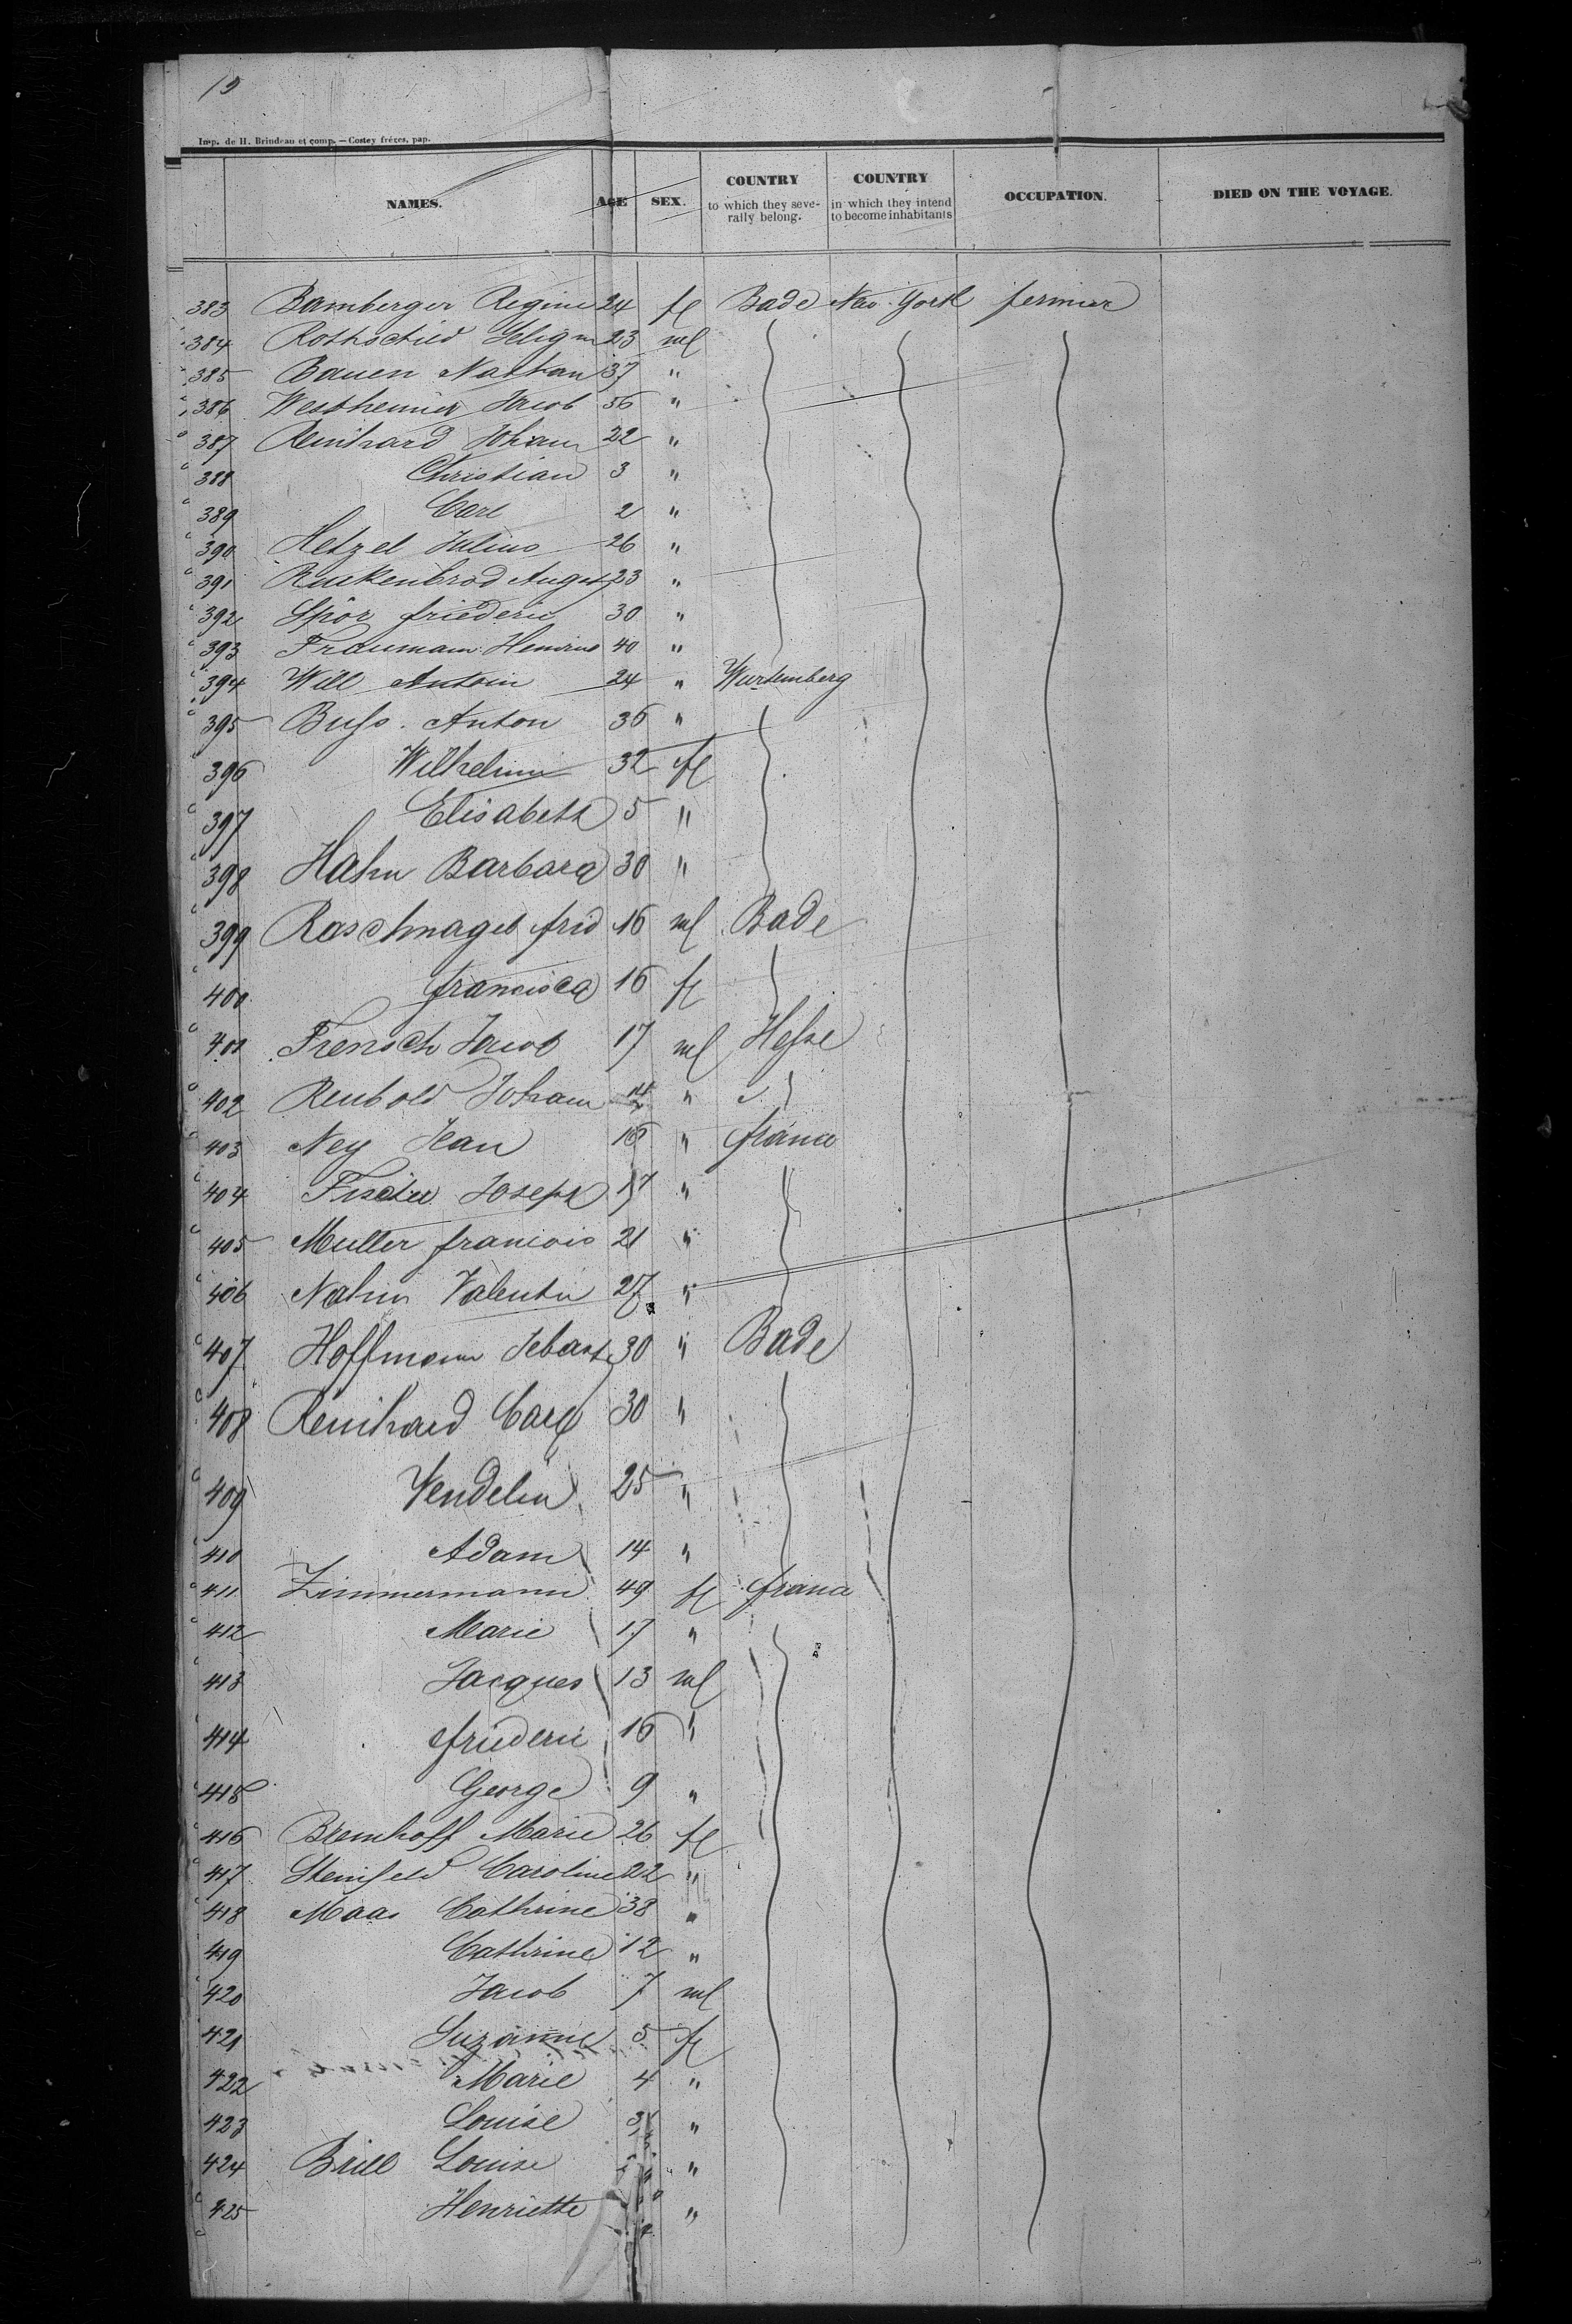 Imp. de H. Brindeau et comp. — Costey frères, pap.
NAMES. AGE SEX. COUNTRY to which they severally belong. COUNTRY in which they intend to become inhabitants OCCUPATION. DIED ON THE VOYAGE.
383 Bamberger Regine 24 fl Bade New-York fermier
384 Rothschild Seligm 23 ml
385 Bauen Nathan 37 "
386 Westheimer Jacob 56 "
387 Reinhard Johann 22 "
388 Christian 3 "
389 Carl 2 "
390 Hetzel Julius 26 "
391 Ruckenbrod August 23 "
392 Spör friederic 30 "
393 Fraumann 40 "
394 Will Antoin 24 " Wurtemberg
395 Buss. Anton 36 "
396 Wilhelmi 32 fl
397 Elisabeth 5 "
398 Hahn Barbara 30 "
399 Raschnagel frid 16 ml Bade
400 francisca 16 fl
401 Frensch Jacob 17 ml Hesse
402 Reubold Johann 14 "
403 Ney Jean 16 " france
404 Fischer Joseph 17 "
405 Muller francois 21 "
406 Nahm Valentin 27 "
407 Hoffmann Sebast 30 " Bade
408 Reinhard Carl 30 "
409 Vendelin 25 "
410 Adam 14 "
411 Zimmermann 49 fl france
412 Marie 17 "
413 Jacques 13 ml
414 friederic 16 "
415 George 9 "
416 Bremhoff Marie 26 fl
417 Steinfeld Caroline 22 "
418 Maas Cathrine 38 "
419 Cathrine 12 "
420 Jacob 7 ml
421 Suzanne 5 fl
422 Marie 4 "
423 Louise "
424 Brill Louise "
425 Henriette "